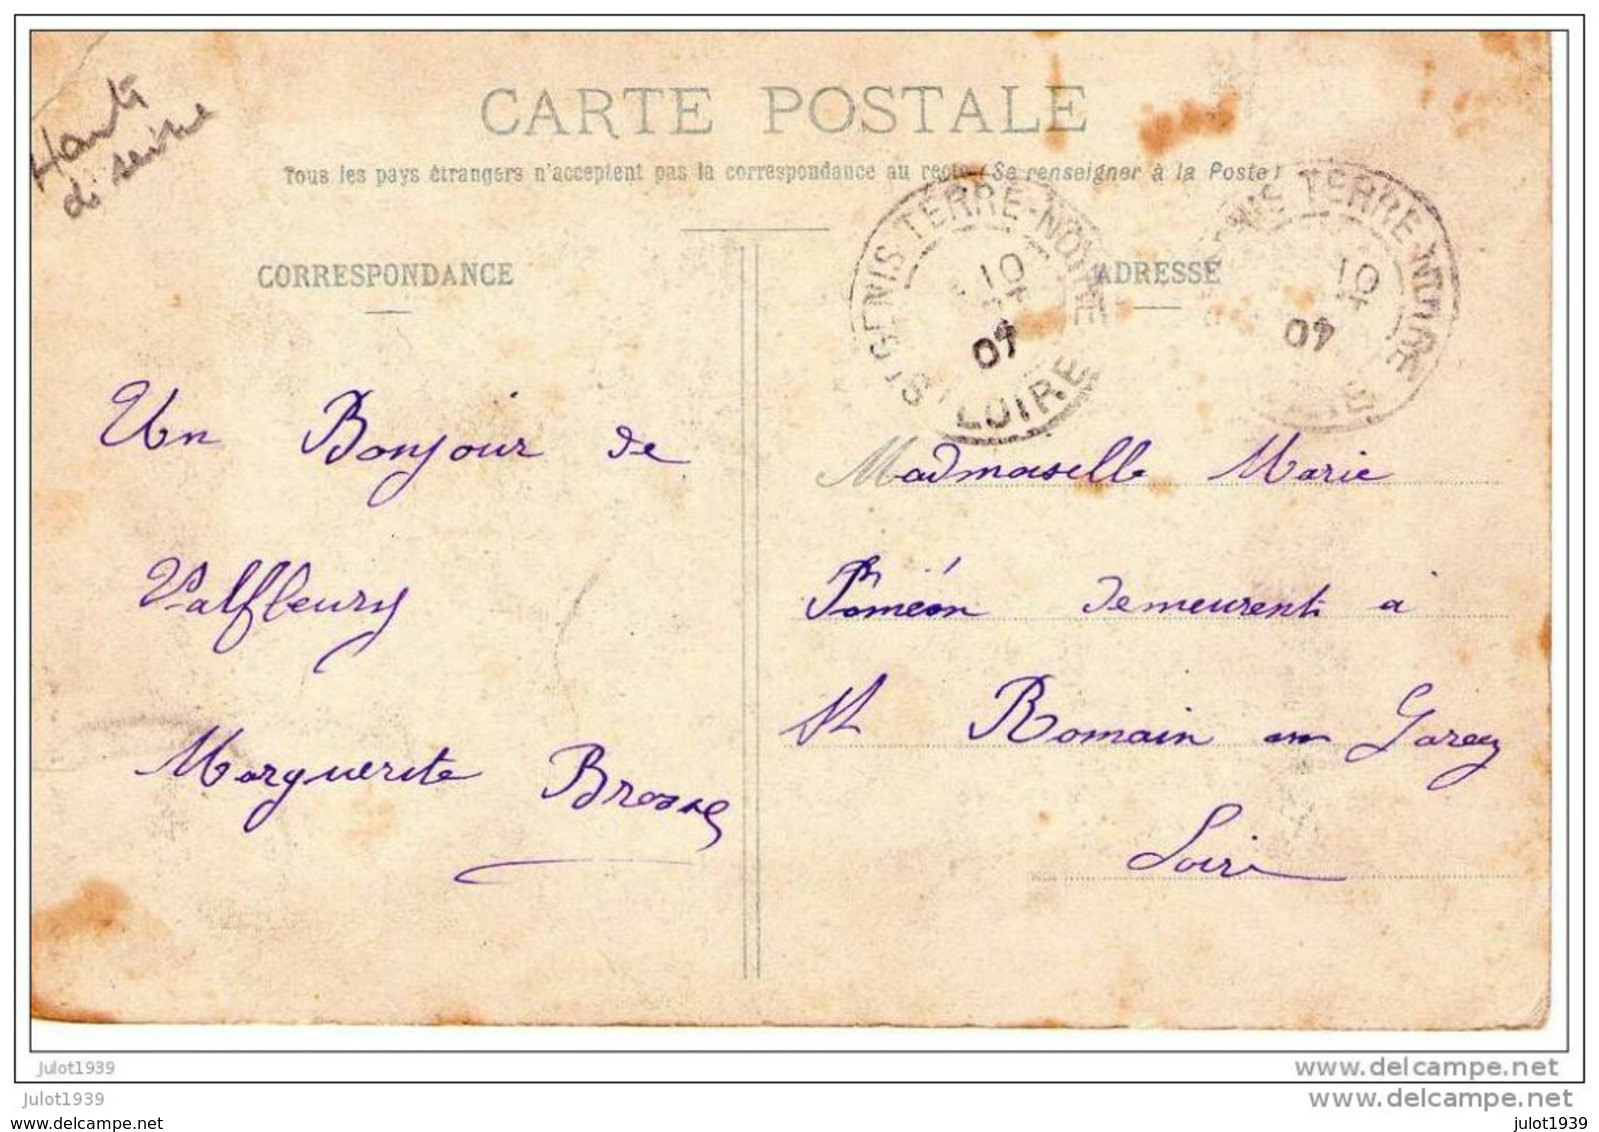 CARTE POSTALE
Tous les pays étrangers n'acceptent pas la correspondance au recto (Se renseigner à la Poste)
CORRESPONDANCE
Un Bonjour de
Valfleury
Marguerite Brosse
ADRESSE
ST GENIS TERRE-NOIRE
10
07
LOIRE
NIS TERRE-NOIRE
10
07
Madmoiselle Marie
Poméon demeurent à
St Romain en Garez
Loire
julot1939
delcampe.net
julot1939
delcampe.net
julot1939
julot1939